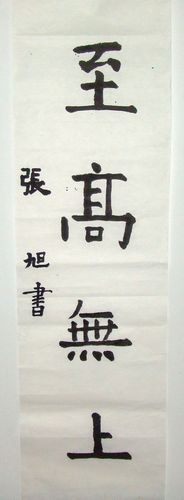 至髙無上
張旭書